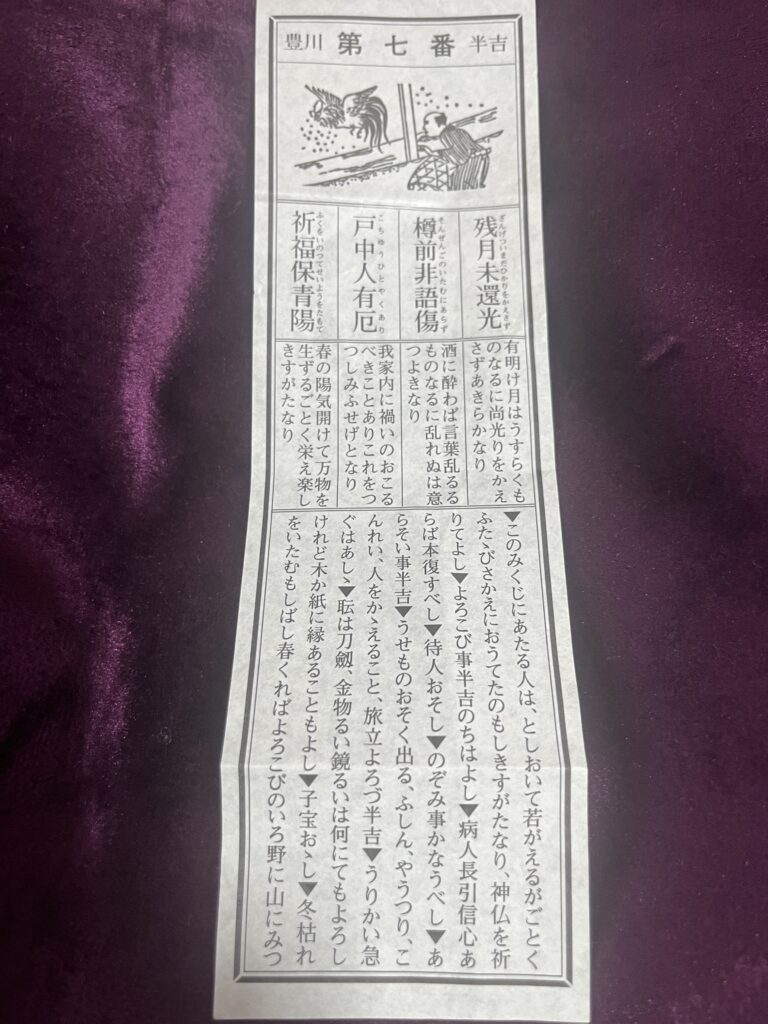 豊川 第七番 半吉
ざんげついまだひかりをかえさず
残月未還光
そんぜんごのいたむにあらず
樽前非語傷
こちゅうひとやくあり
戸中人有厄
ふくをいのつてせいようをたもて
祈福保青陽
有明け月はうすらくも
のなるに尚光りをかえ
さずあきらかなり
酒に酔わば言葉乱るる
ものなるに乱れぬは意
つよきなり
我家内に禍いのおこる
べきことありこれをつ
つしみふせげとなり
春の陽気開けて万物を
生ずるごとく栄え楽し
きすがたなり
▼このみくじにあたる人は、としおいて若がえるがごとく
ふたゝびさかえにおうてたのもしきすがたなり、神仏を祈
りてよし▼よろこび事半吉のちはよし▼病人長引信心あ
らば本復すべし▼待人おそし▼のぞみ事かなうべし▼あ
らそい事半吉▼うせものおそく出る、ふしん、やうつり、こ
んれい、人をかゝえること、旅立よろづ半吉▼うりかい急
ぐはあしゝ▼は刀劔、金物るい鏡るいは何にてもよろし
けれど木か紙に縁あることもよし▼子宝おゝし▼冬枯れ
をいたむもしばし春くればよろこびのいろ野に山にみつ